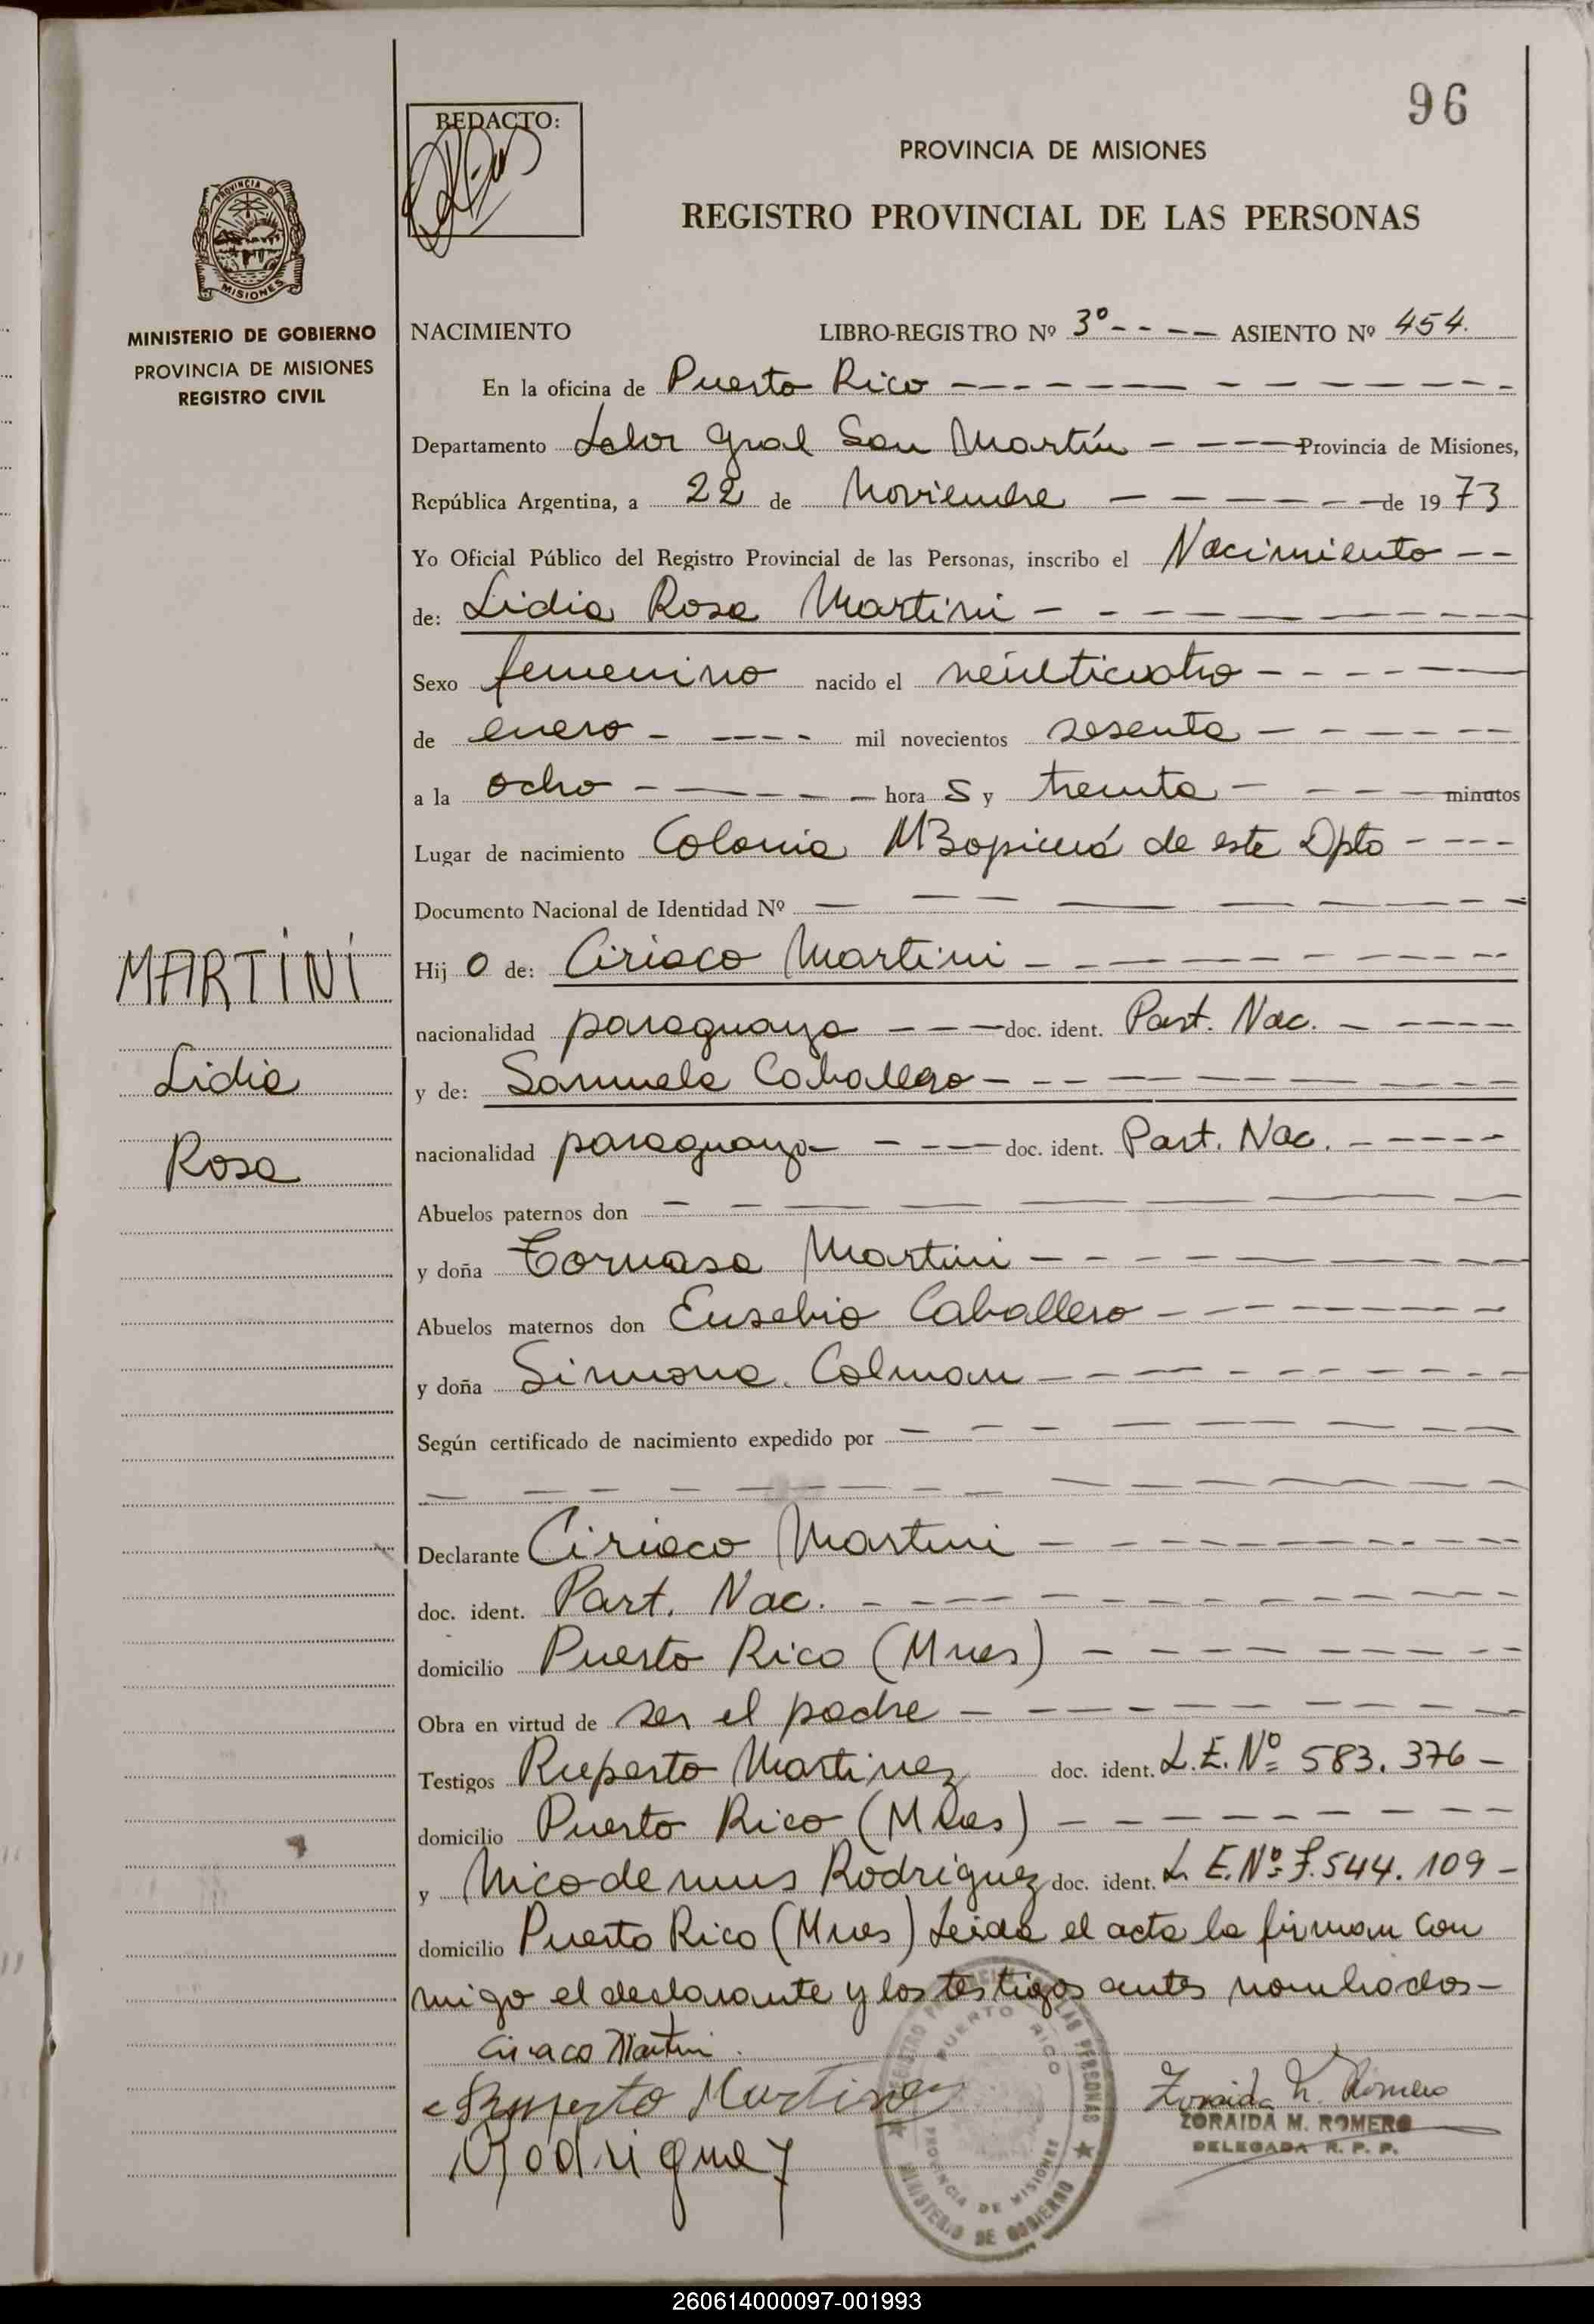 96
REDACTO:
PROVINCIA DE MISIONES
REGISTRO PROVINCIAL DE LAS PERSONAS
PROVINCIA DE
MISIONES
MINISTERIO DE GOBIERNO
PROVINCIA DE MISIONES
REGISTRO CIVIL
NACIMIENTO LIBRO-REGISTRO Nº 3º - - - - ASIENTO Nº 454.
En la oficina de Puerto Rico
Departamento Ldor Gral San Martín Provincia de Misiones,
República Argentina, a 22 de Noviembre de 1973
Yo Oficial Público del Registro Provincial de las Personas, inscribo el Nacimiento
de: Lidia Rosa Martini
Sexo femenino nacido el veinticuatro
de enero mil novecientos sesenta
a la ocho hora s y treinta minutos
Lugar de nacimiento Colonia MBopicuá de este Dpto
Documento Nacional de Identidad Nº
MARTINI
Lidia
Rosa
Hij o de: Ciriaco Martini
nacionalidad paraguaya doc. ident. Part. Nac.
y de: Samuela Caballero
nacionalidad paraguaya doc. ident. Part. Nac.
Abuelos paternos don
y doña Tomasa Martini
Abuelos maternos don Eusebio Caballero
y doña Simona Colman
Según certificado de nacimiento expedido por
Declarante Ciriaco Martini
doc. ident. Part. Nac.
domicilio Puerto Rico (Mnes)
Obra en virtud de ser el padre
Testigos Ruperto Martinez doc. ident. L.E. Nº 583.376
domicilio Puerto Rico (Mnes)
y Nicodemus Rodriguez doc. ident. L.E. Nº 7.544.109
domicilio Puerto Rico (Mnes) Leida el acta la firman con
migo el declarante y los testigos antes nombrados
Ciriaco Martini
Ruperto Martinez
Rodriguez
Zoraida M. Romero
ZORAIDA M. ROMERO
DELEGADA R. P. P.
PUERTO RICO
PROVINCIA DE MISIONES
MINISTERIO DE GOBIERNO
260614000097-001993